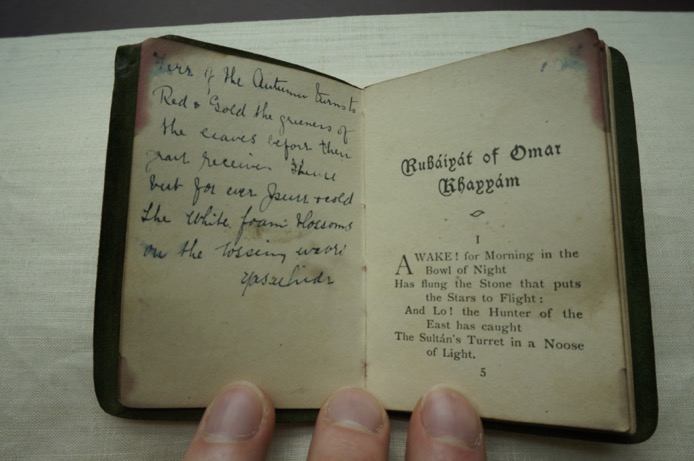 if the Autumn turns to
Red & Gold the greeness of
the leaves before their
but for ever
the white foam blossoms
on the tossing
Rubáiyát of Omar
Khayyám
I
AWAKE! for Morning in the
Bowl of Night
Has flung the Stone that puts
the Stars to Flight:
And Lo! the Hunter of the
East has caught
The Sultán's Turret in a Noose
of Light.
5